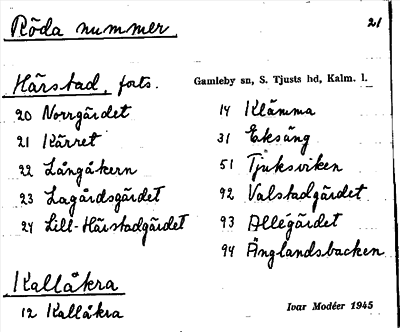 Röda nummer
21
Härstad, forts.
Gamleby sn, S. Tjusts hd, Kalm. l.
20 Norrgärdet
21 Kärret
22 Långåkern
23 Lagårdsgärdet
24 Lill-Härstadgärdet
14 Klämma
31 Eksäng
51 Tjuksviken
92 Valstadgärdet
93 Allégärdet
94 Änglandsbacken
Kallåkra
12 Kallåkra
Ivar Modéer 1945